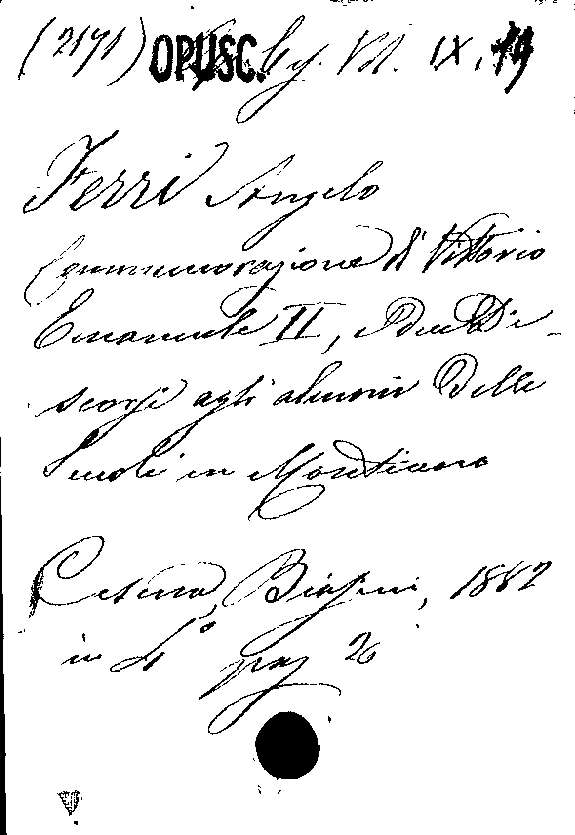 (2171) OPUSC. VII. IX. 19
Ferri Angelo
Commemorazione di Vittorio
Emanuele II, Due Di-
scorsi agli alunni delle
Scuole in Montiano
Cesena, Biasini, 1882
in 4° pag 26